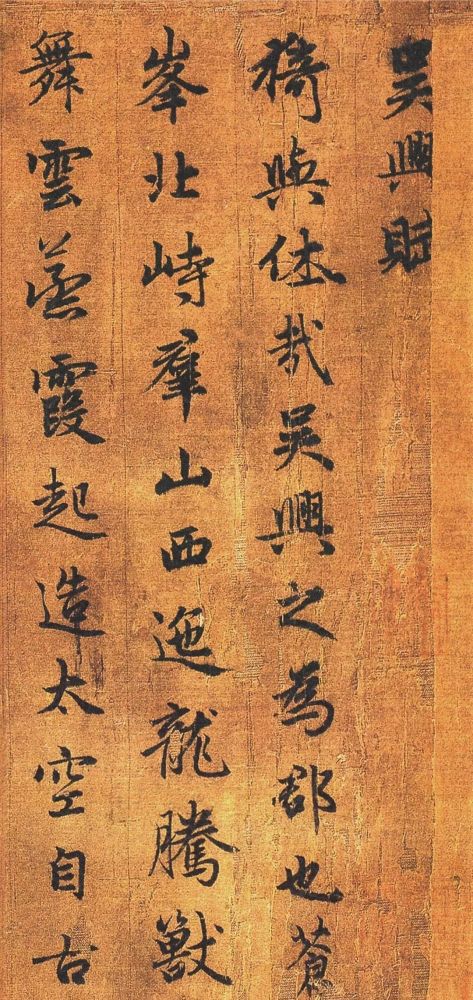 吳興賦
猗與休哉吳興之為郡也蒼
峯北峙羣山西迤龍騰獸
舞雲蒸霞起造太空自古